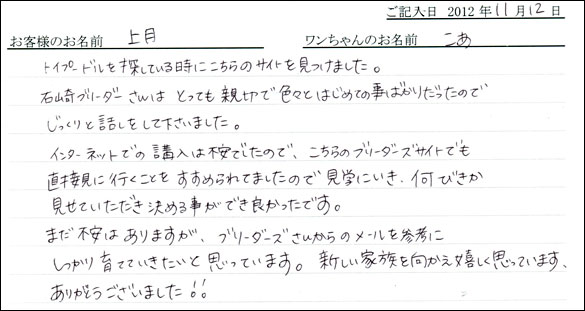 ご記入日 2012年11月12日
お客様のお名前 上月 ワンちゃんのお名前 こあ
トイプードルを探している時にこちらのサイトを見つけました。
石山奇ブリーダーさんは とっても親切で色々とはじめての事ばかりだったので
じっくりと話しをして下さいました。
インターネットでの講入は不安でしたので、こちらのブリーダーズサイトでも
直接見に行くことをすすめられてましたので見学にいき、何びきか
見せていただき決める事ができ良かったです。
まだ不安はありますが、ブリーダーズさんからのメールを参考に
しっかり育てていきたいと思っています。新しい家族を向かえ嬉しく思っています、
ありがとうございました!!